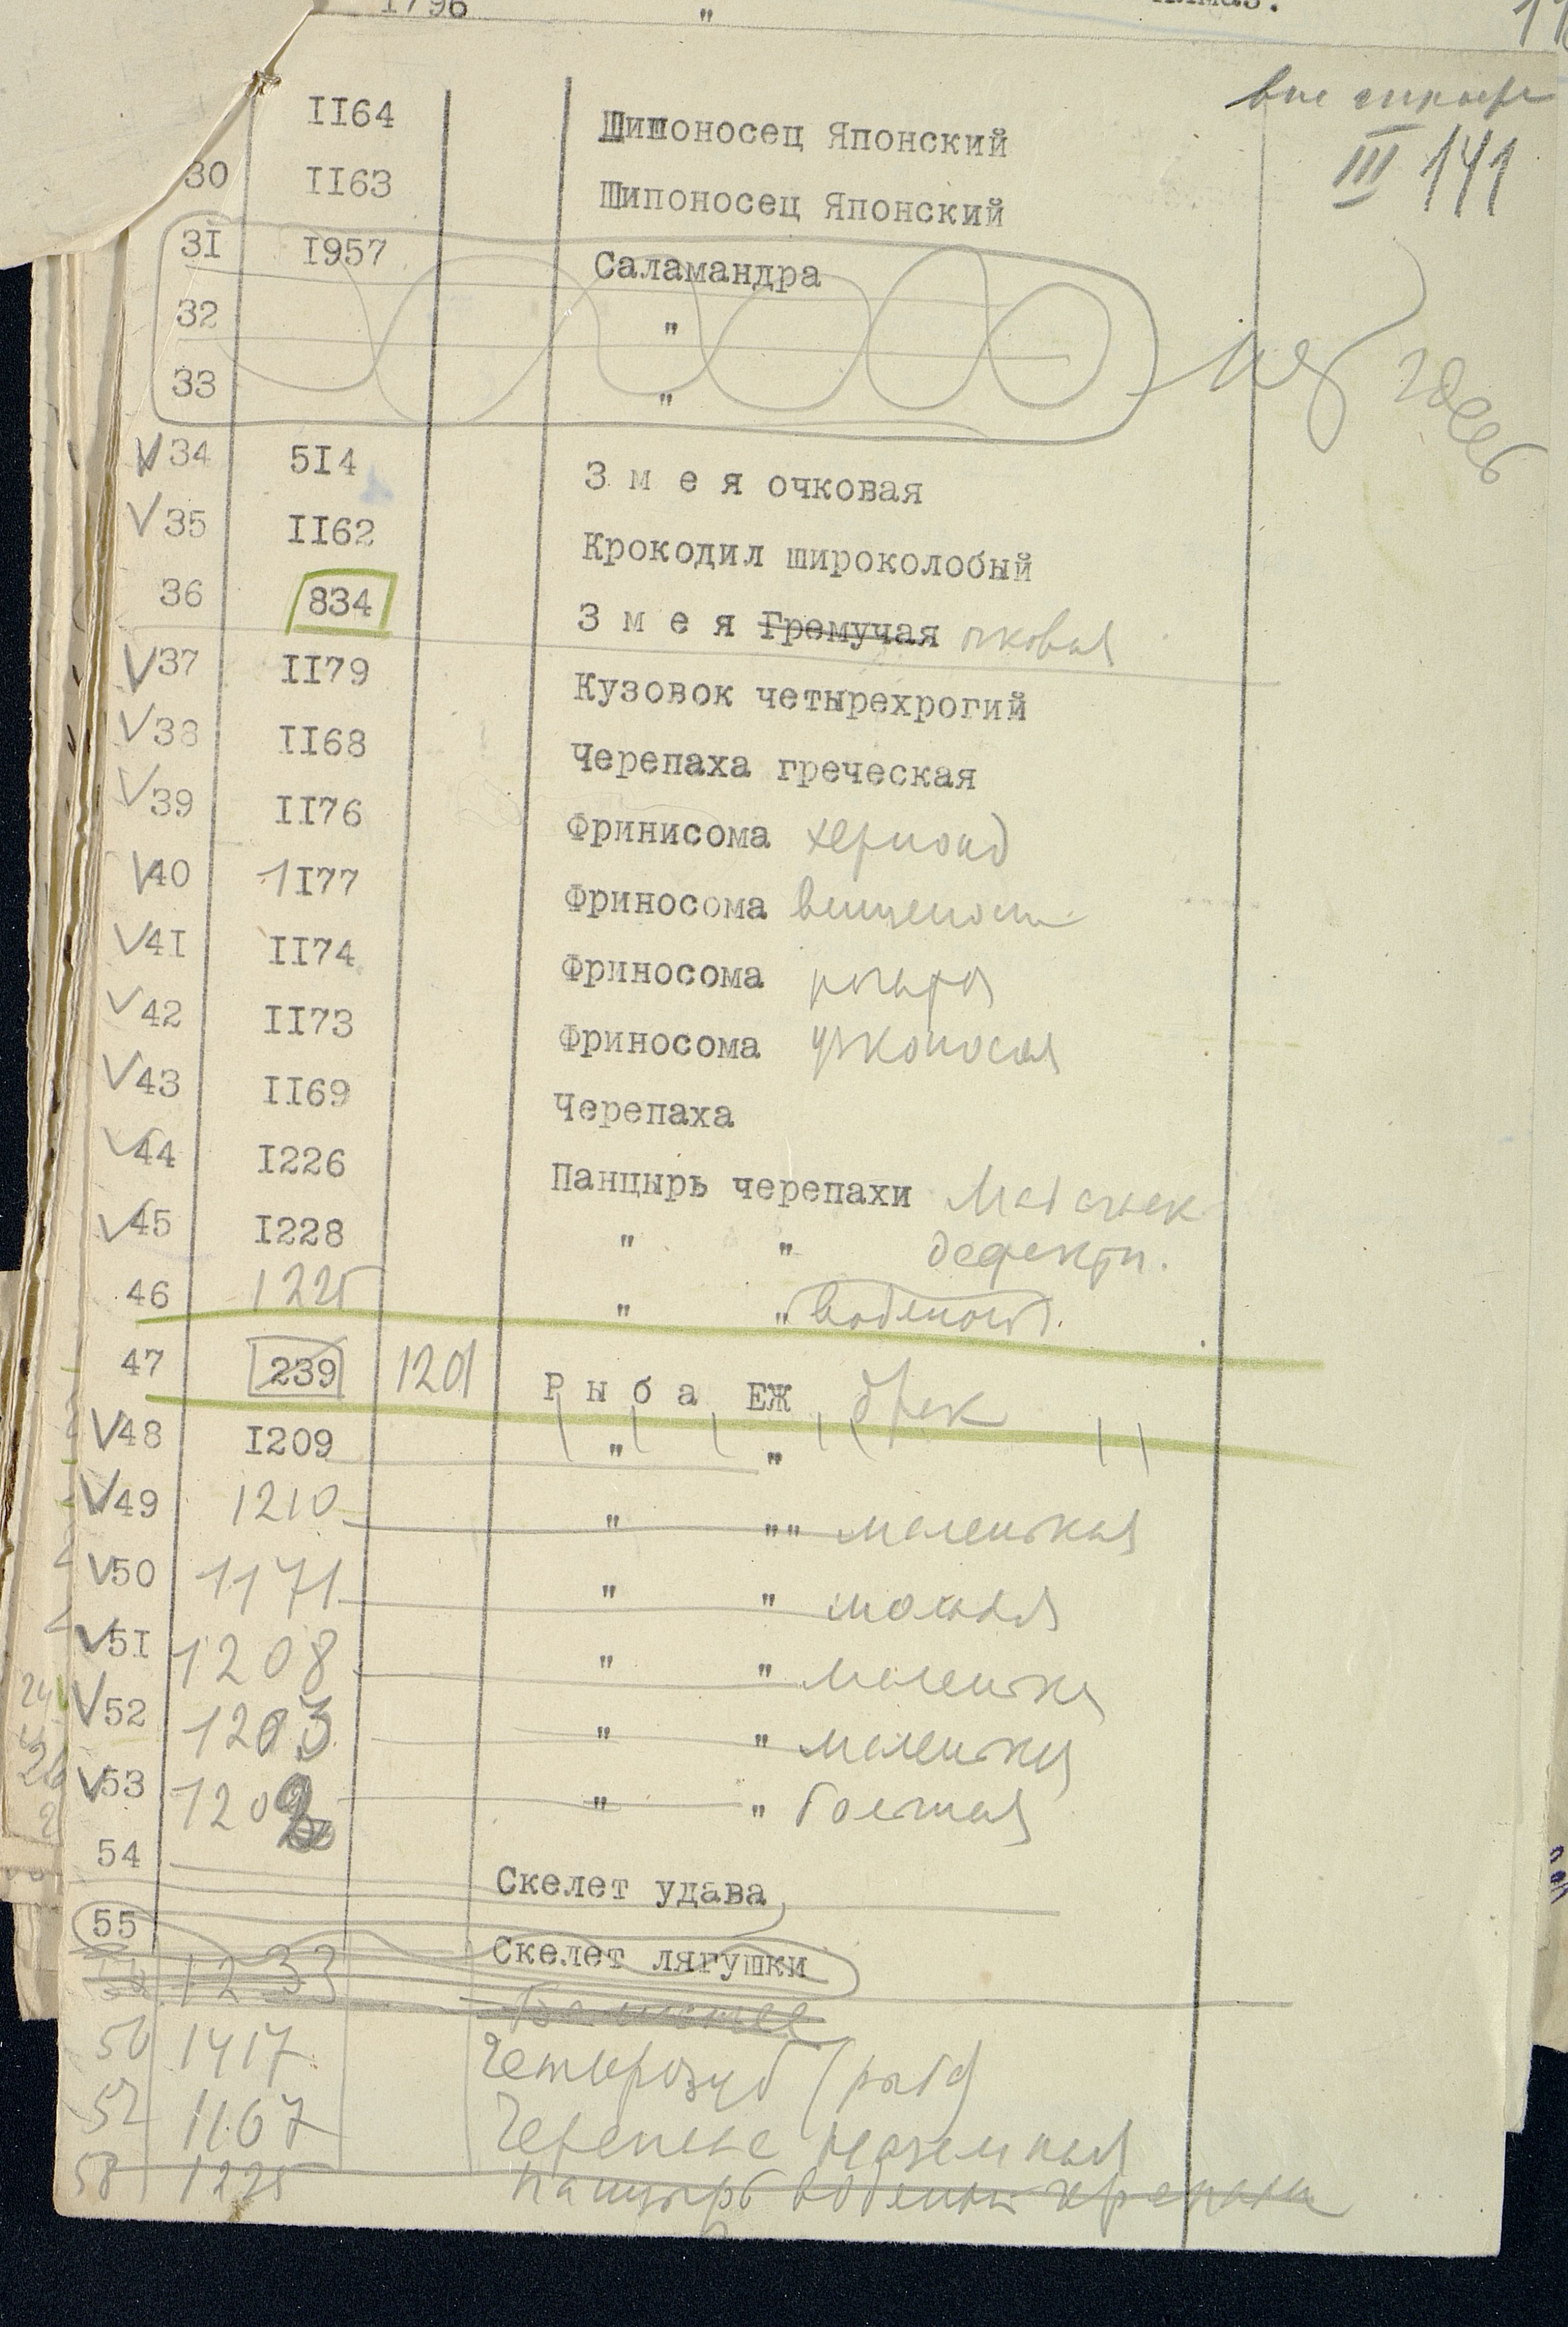 1796 "
вне
III 141
II64 Шипоносец Японский
30 II63 Шипоносец Японский
3I I957 Саламандра
32 "
33 "
V 34 5I4 З м е я очковая
V 35 II62 Крокодил широколобый
36 834 З м е я Гремучая очковая
V 37 II79 Кузовок четырехрогий
V 38 II68 Черепаха греческая
V 39 II76 Фринисома
V 40 1I77 Фриносома
V 4I II74 Фриносома
V 42 II73 Фриносома узконосая
V 43 II69 Черепаха
V 44 I226 Панцырь черепахи
V 45 I228 " " дефектн.
46 1225 " "
47 239 1201 Р ы б а ЕЖ брак
V 48 I209 " "
V 49 1210 " "" маленькая
V 50 1171 " "
V 5I 1208 " " маленькая
V 52 1203 " " маленькая
V 53 1202 " "
54 Скелет удава
55 Скелет лягушки
1233
56 1417 Четырозуб (рыба)
57 1167 Черепаха наземная
58 1225 Панцырь водяной черепахи